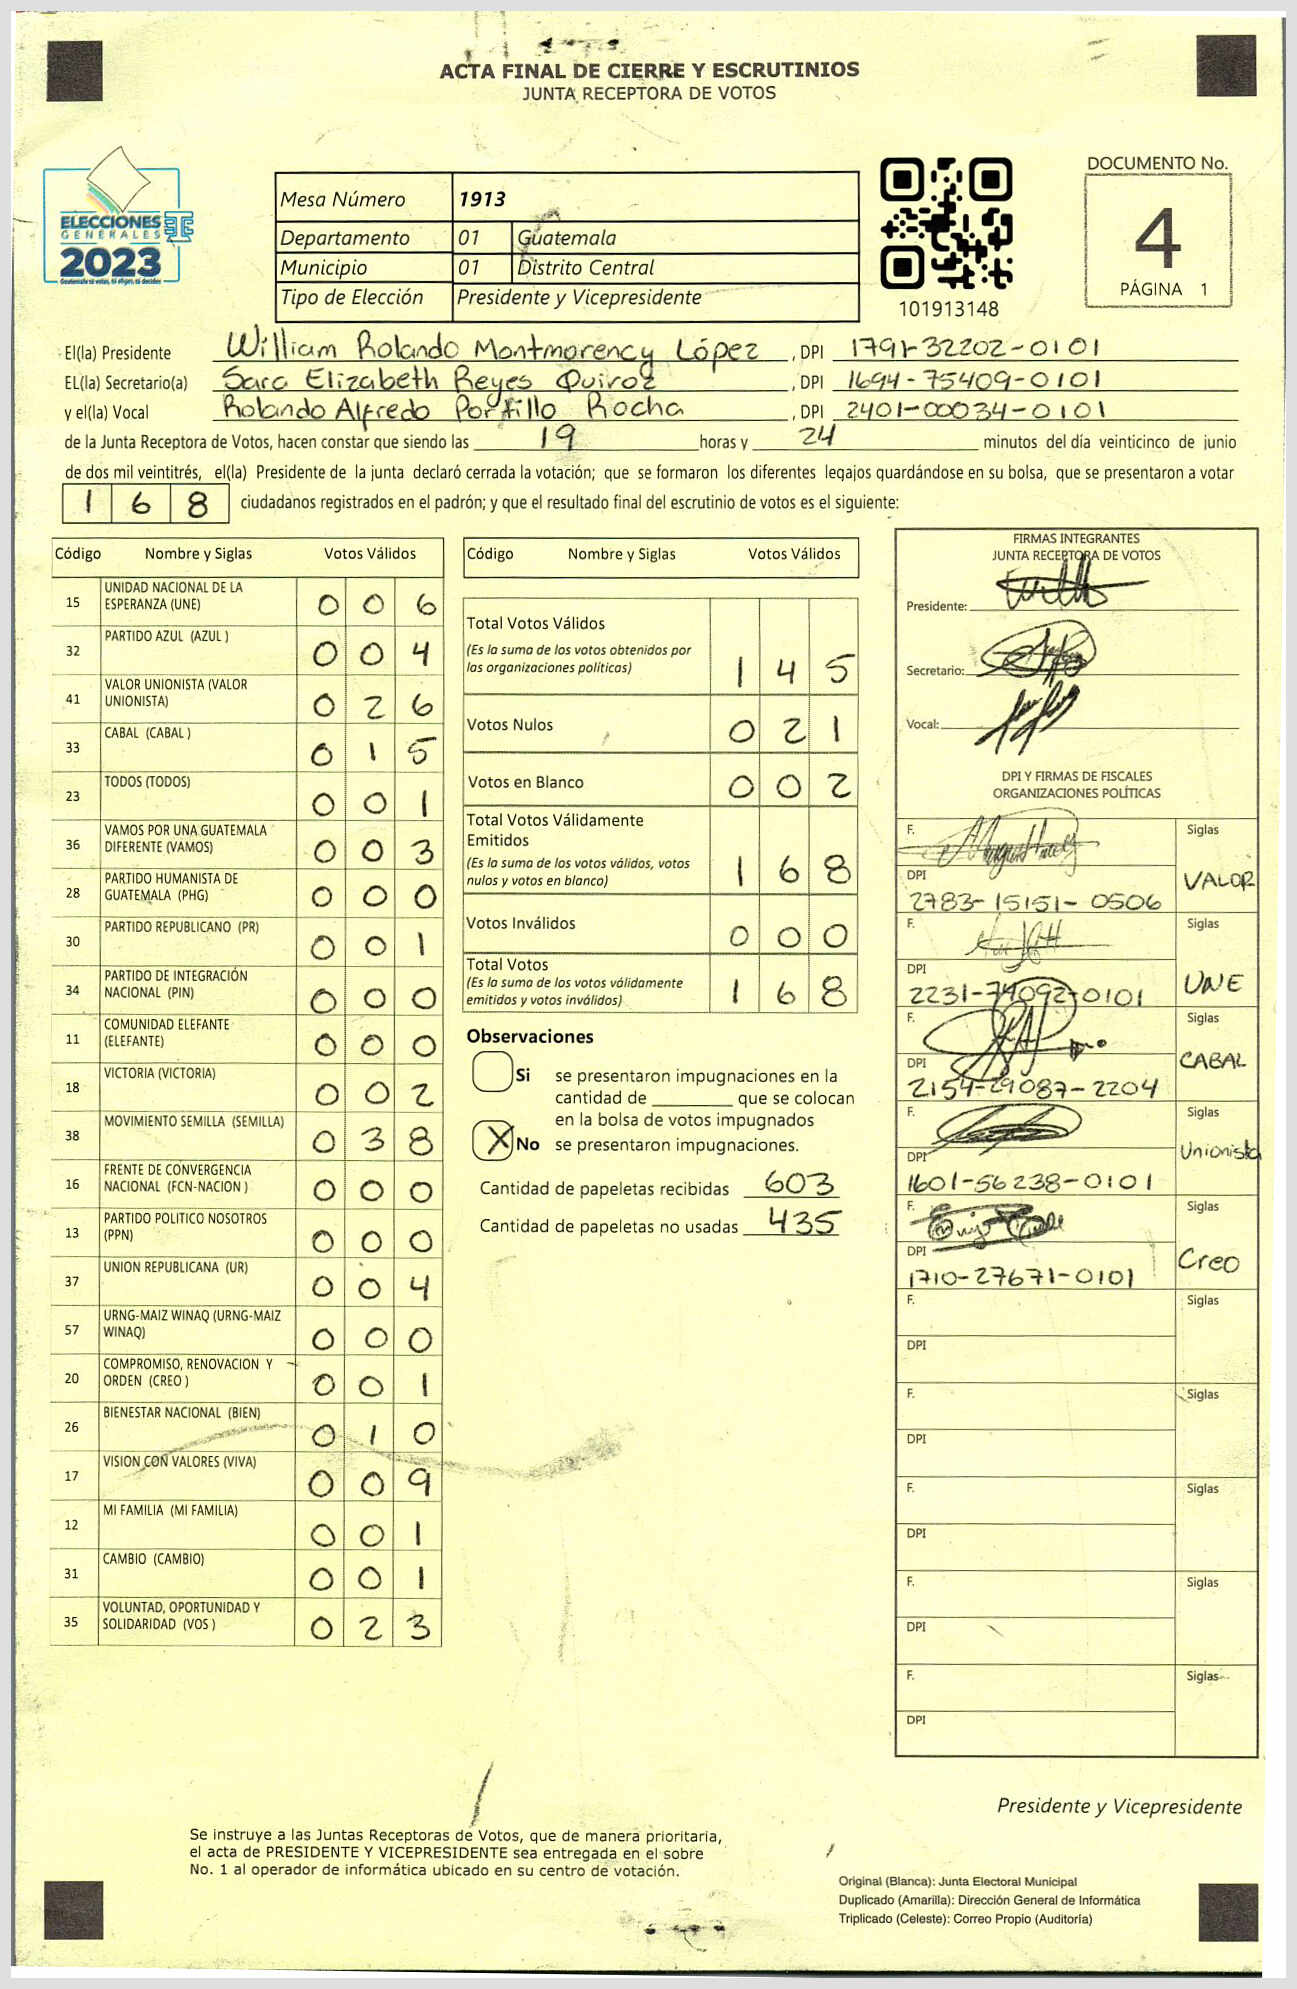 ACTA FINAL DE CIERRE Y ESCRUTINIOS
JUNTA RECEPTORA DE VOTOS
ELECCIONES
GENERALES
2023
Guatemala tú votas, tú eliges, tú decides
Mesa Número 1913
Departamento 01 Guatemala
Municipio 01 Distrito Central
Tipo de Elección Presidente y Vicepresidente
101913148
DOCUMENTO No.
4
PÁGINA 1
El(la) Presidente William Rolando Montmorency López , DPI 1791-32202-0101
EL(la) Secretario(a) Sara Elizabeth Reyes Quiroz , DPI 1694-75409-0101
y el(la) Vocal Rolando Alfredo Portillo Rocha , DPI 2401-00034-0101
de la Junta Receptora de Votos, hacen constar que siendo las 19 horas y 24 minutos del día veinticinco de junio
de dos mil veintitrés, el(la) Presidente de la junta declaró cerrada la votación; que se formaron los diferentes legajos quardándose en su bolsa, que se presentaron a votar
168 ciudadanos registrados en el padrón; y que el resultado final del escrutinio de votos es el siguiente:
Código Nombre y Siglas Votos Válidos
15 UNIDAD NACIONAL DE LA ESPERANZA (UNE) 0 0 6
32 PARTIDO AZUL (AZUL ) 0 0 4
41 VALOR UNIONISTA (VALOR UNIONISTA) 0 2 6
33 CABAL (CABAL ) 0 1 5
23 TODOS (TODOS) 0 0 1
36 VAMOS POR UNA GUATEMALA DIFERENTE (VAMOS) 0 0 3
28 PARTIDO HUMANISTA DE GUATEMALA (PHG) 0 0 0
30 PARTIDO REPUBLICANO (PR) 0 0 1
34 PARTIDO DE INTEGRACIÓN NACIONAL (PIN) 0 0 0
11 COMUNIDAD ELEFANTE (ELEFANTE) 0 0 0
18 VICTORIA (VICTORIA) 0 0 2
38 MOVIMIENTO SEMILLA (SEMILLA) 0 3 8
16 FRENTE DE CONVERGENCIA NACIONAL (FCN-NACION ) 0 0 0
13 PARTIDO POLITICO NOSOTROS (PPN) 0 0 0
37 UNION REPUBLICANA (UR) 0 0 4
57 URNG-MAIZ WINAQ (URNG-MAIZ WINAQ) 0 0 0
20 COMPROMISO, RENOVACION Y ORDEN (CREO ) 0 0 1
26 BIENESTAR NACIONAL (BIEN) 0 1 0
17 VISION CON VALORES (VIVA) 0 0 9
12 MI FAMILIA (MI FAMILIA) 0 0 1
31 CAMBIO (CAMBIO) 0 0 1
35 VOLUNTAD, OPORTUNIDAD Y SOLIDARIDAD (VOS ) 0 2 3
Código Nombre y Siglas Votos Válidos
Total Votos Válidos 1 4 5
(Es la suma de los votos obtenidos por
las organizaciones políticas)
Votos Nulos 0 2 1
Votos en Blanco 0 0 2
Total Votos Válidamente
Emitidos 1 6 8
(Es la suma de los votos válidos, votos
nulos y votos en blanco)
Votos Inválidos 0 0 0
Total Votos 1 6 8
(Es la suma de los votos válidamente
emitidos y votos inválidos)
Observaciones
Si se presentaron impugnaciones en la
cantidad de ________ que se colocan
en la bolsa de votos impugnados
X No se presentaron impugnaciones.
Cantidad de papeletas recibidas 603
Cantidad de papeletas no usadas 435
FIRMAS INTEGRANTES
JUNTA RECEPTORA DE VOTOS
Presidente:
Secretario:
Vocal:
DPI Y FIRMAS DE FISCALES
ORGANIZACIONES POLÍTICAS
F. Siglas
DPI VALOR
2783-15151-0506
F. Siglas
DPI UNE
2231-74092-0101
F. Siglas
DPI CABAL
2154-29087-2204
F. Siglas
DPI Unionista
1601-56238-0101
F. Siglas
DPI Creo
1710-27671-0101
F. Siglas
DPI
F. Siglas
DPI
F. Siglas
DPI
F. Siglas
DPI
F. Siglas
DPI
Presidente y Vicepresidente
Se instruye a las Juntas Receptoras de Votos, que de manera prioritaria,
el acta de PRESIDENTE Y VICEPRESIDENTE sea entregada en el sobre
No. 1 al operador de informática ubicado en su centro de votación.
Original (Blanca): Junta Electoral Municipal
Duplicado (Amarilla): Dirección General de Informática
Triplicado (Celeste): Correo Propio (Auditoría)